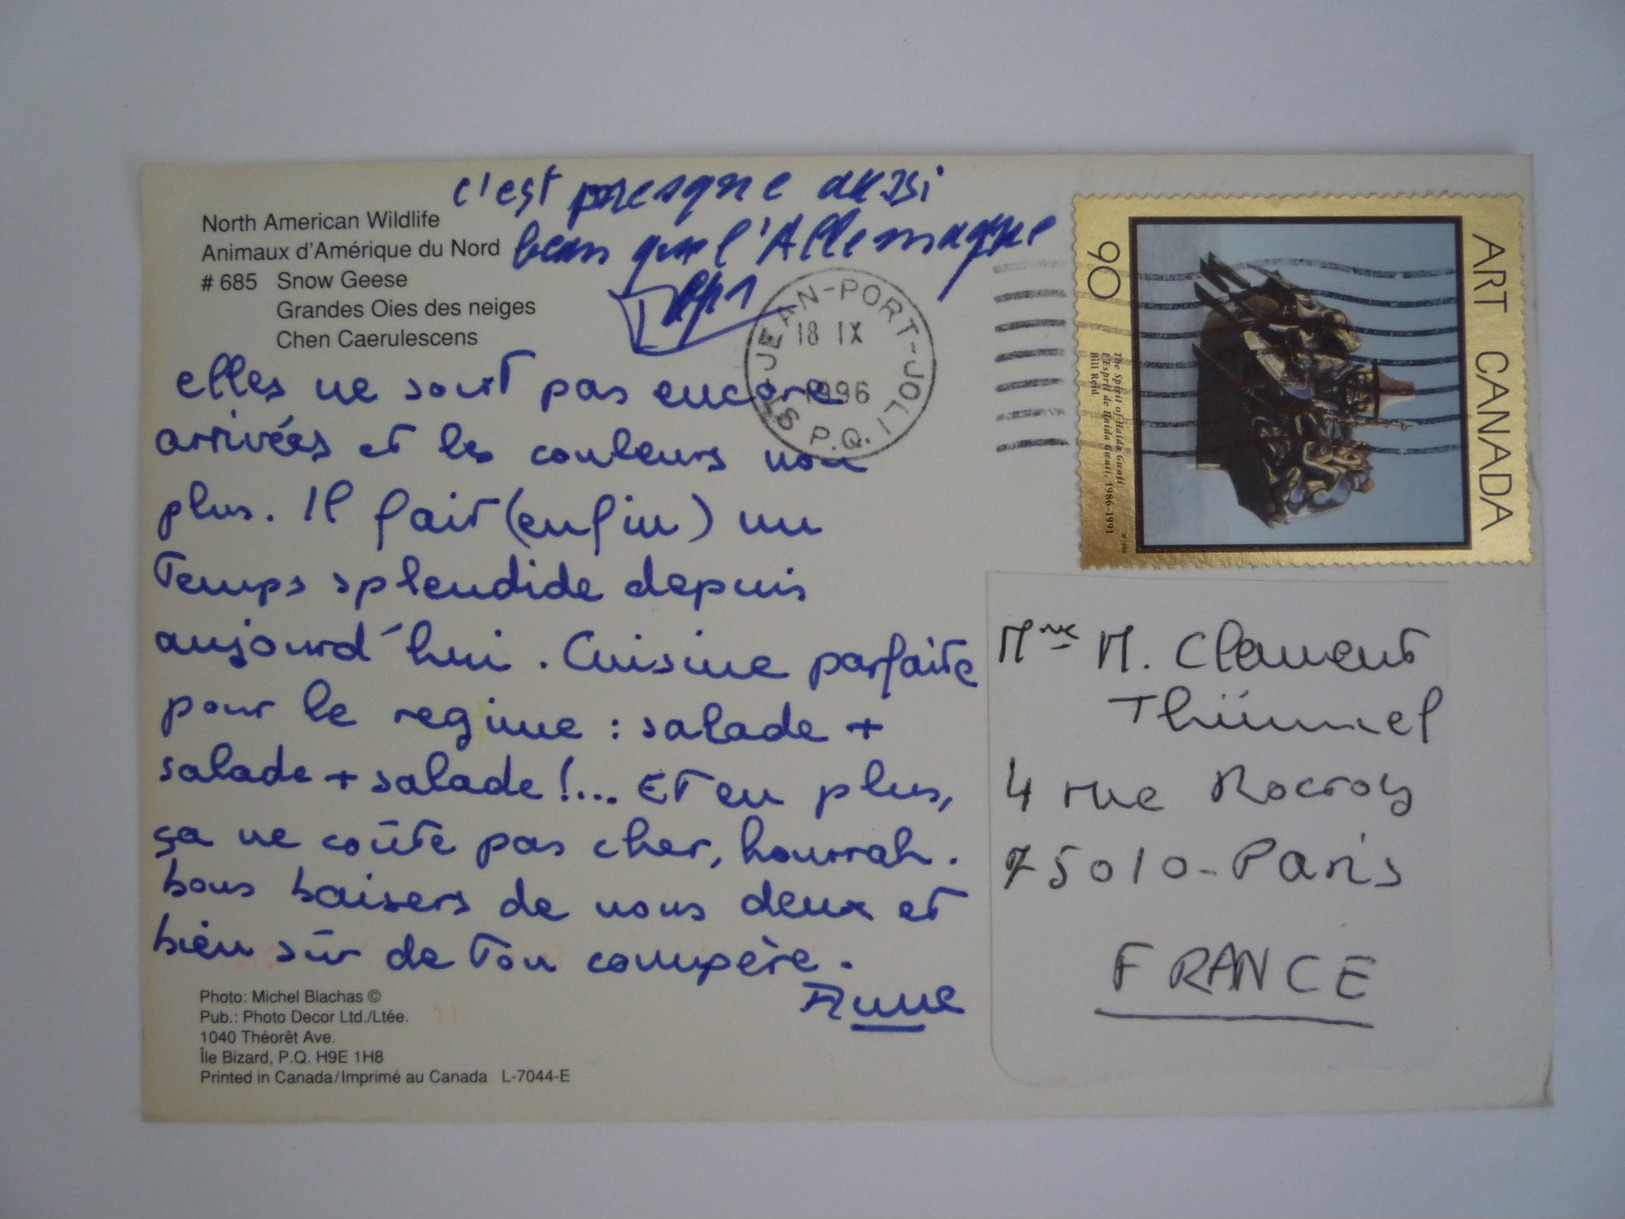 c'est presque aussi
beau que l'Allemagne
North American Wildlife
Animaux d'Amérique du Nord
# 685 Snow Geese
Grandes Oies des neiges
Chen Caerulescens
elles ne sont pas encore
arrivées et les couleurs non
plus. Il fait (enfin) un
temps splendide depuis
aujourd'hui. Cuisine parfaite
pour le regime : salade +
salade + salade !... Et en plus,
ça ne coûte pas cher, hourrah.
bons baisers de nous deux et
bien sûr de ton compère.
Anne
Photo: Michel Blachas ©
Pub.: Photo Decor Ltd./Ltée.
1040 Théorêt Ave.
Île Bizard, P.Q. H9E 1H8
Printed in Canada/Imprimé au Canada L-7044-E
ST-JEAN-PORT-JOLI P.Q.
18 IX
1996
ART CANADA
90
The Spirit of Haida Gwaii
L'Esprit de Haida Gwaii, 1986-1991
Bill Reid
Mme M. Clement
Thümmel
4 rue Rocroy
75010-Paris
FRANCE